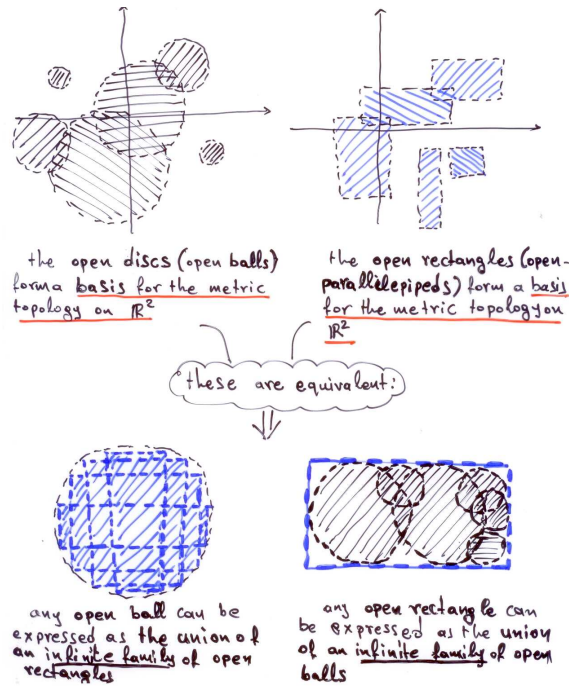 the open discs (open balls)
form a basis for the metric
topology on ℝ²
the open rectangles (open-
parallelepipeds) form a basis
for the metric topology on
ℝ²
these are equivalent:
any open ball can be
expressed as the union of
an infinite family of open
rectangles
any open rectangle can
be expressed as the union
of an infinite family of open
balls